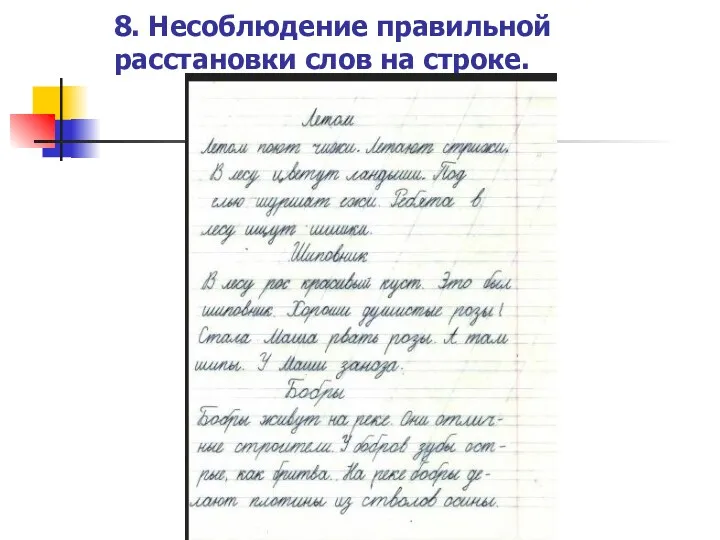 8. Несоблюдение правильной
расстановки слов на строке.
Летом
Летом поют чижи. Летают стрижи.
В лесу цветут ландыши. Под
елью шуршат ежи. Ребята в
лесу ищут шишки.
Шиповник
В лесу рос красивый куст. Это был
шиповник. Хороши душистые розы!
Стала Маша рвать розы. А там
шипы. У Маши заноза.
Бобры
Бобры живут на реке. Они отлич-
ные строители. У бобров зубы ост-
рые, как бритва. На реке бобры де-
лают плотины из стволов осины.